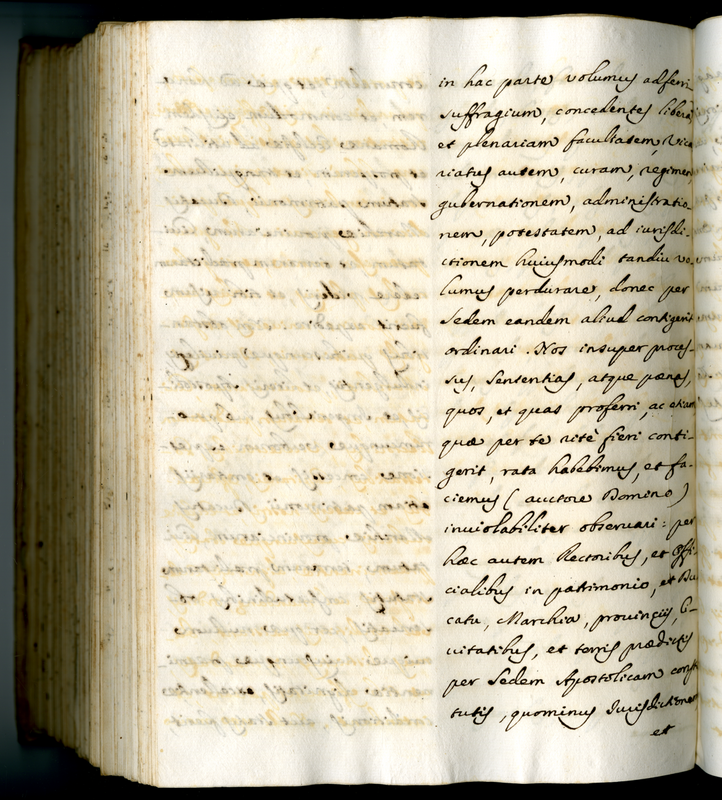 in hac parte volumus adferri
suffragium, concedentes liberã
et plenariam facultatem, Vica
riatus autem, curam, regimen,
gubernationem, administratio-
nem, potestatem, ad iurisdi-
ctionem huiusmodi tandiu vo-
lumus perdurare, donec per
Sedem eandem aliud contigerit
ordinari. Nos insuper proces-
sus, Sententias, atque pœnas,
quos, et quas proferri, ac etiam
quæ per te ritè fieri conti-
gerit, rata habebimus, et fa-
ciemus (auctore Domino)
inviolabiliter observari: per
hæc autem Rectoribus, et Offi-
cialibus in patrimonio, et Du
catu, Marchia, provincijs, Ci-
vitatibus, et terris prædictis
per Sedem Apostolicam consti
tutis, quominus Iurisdictionem
et